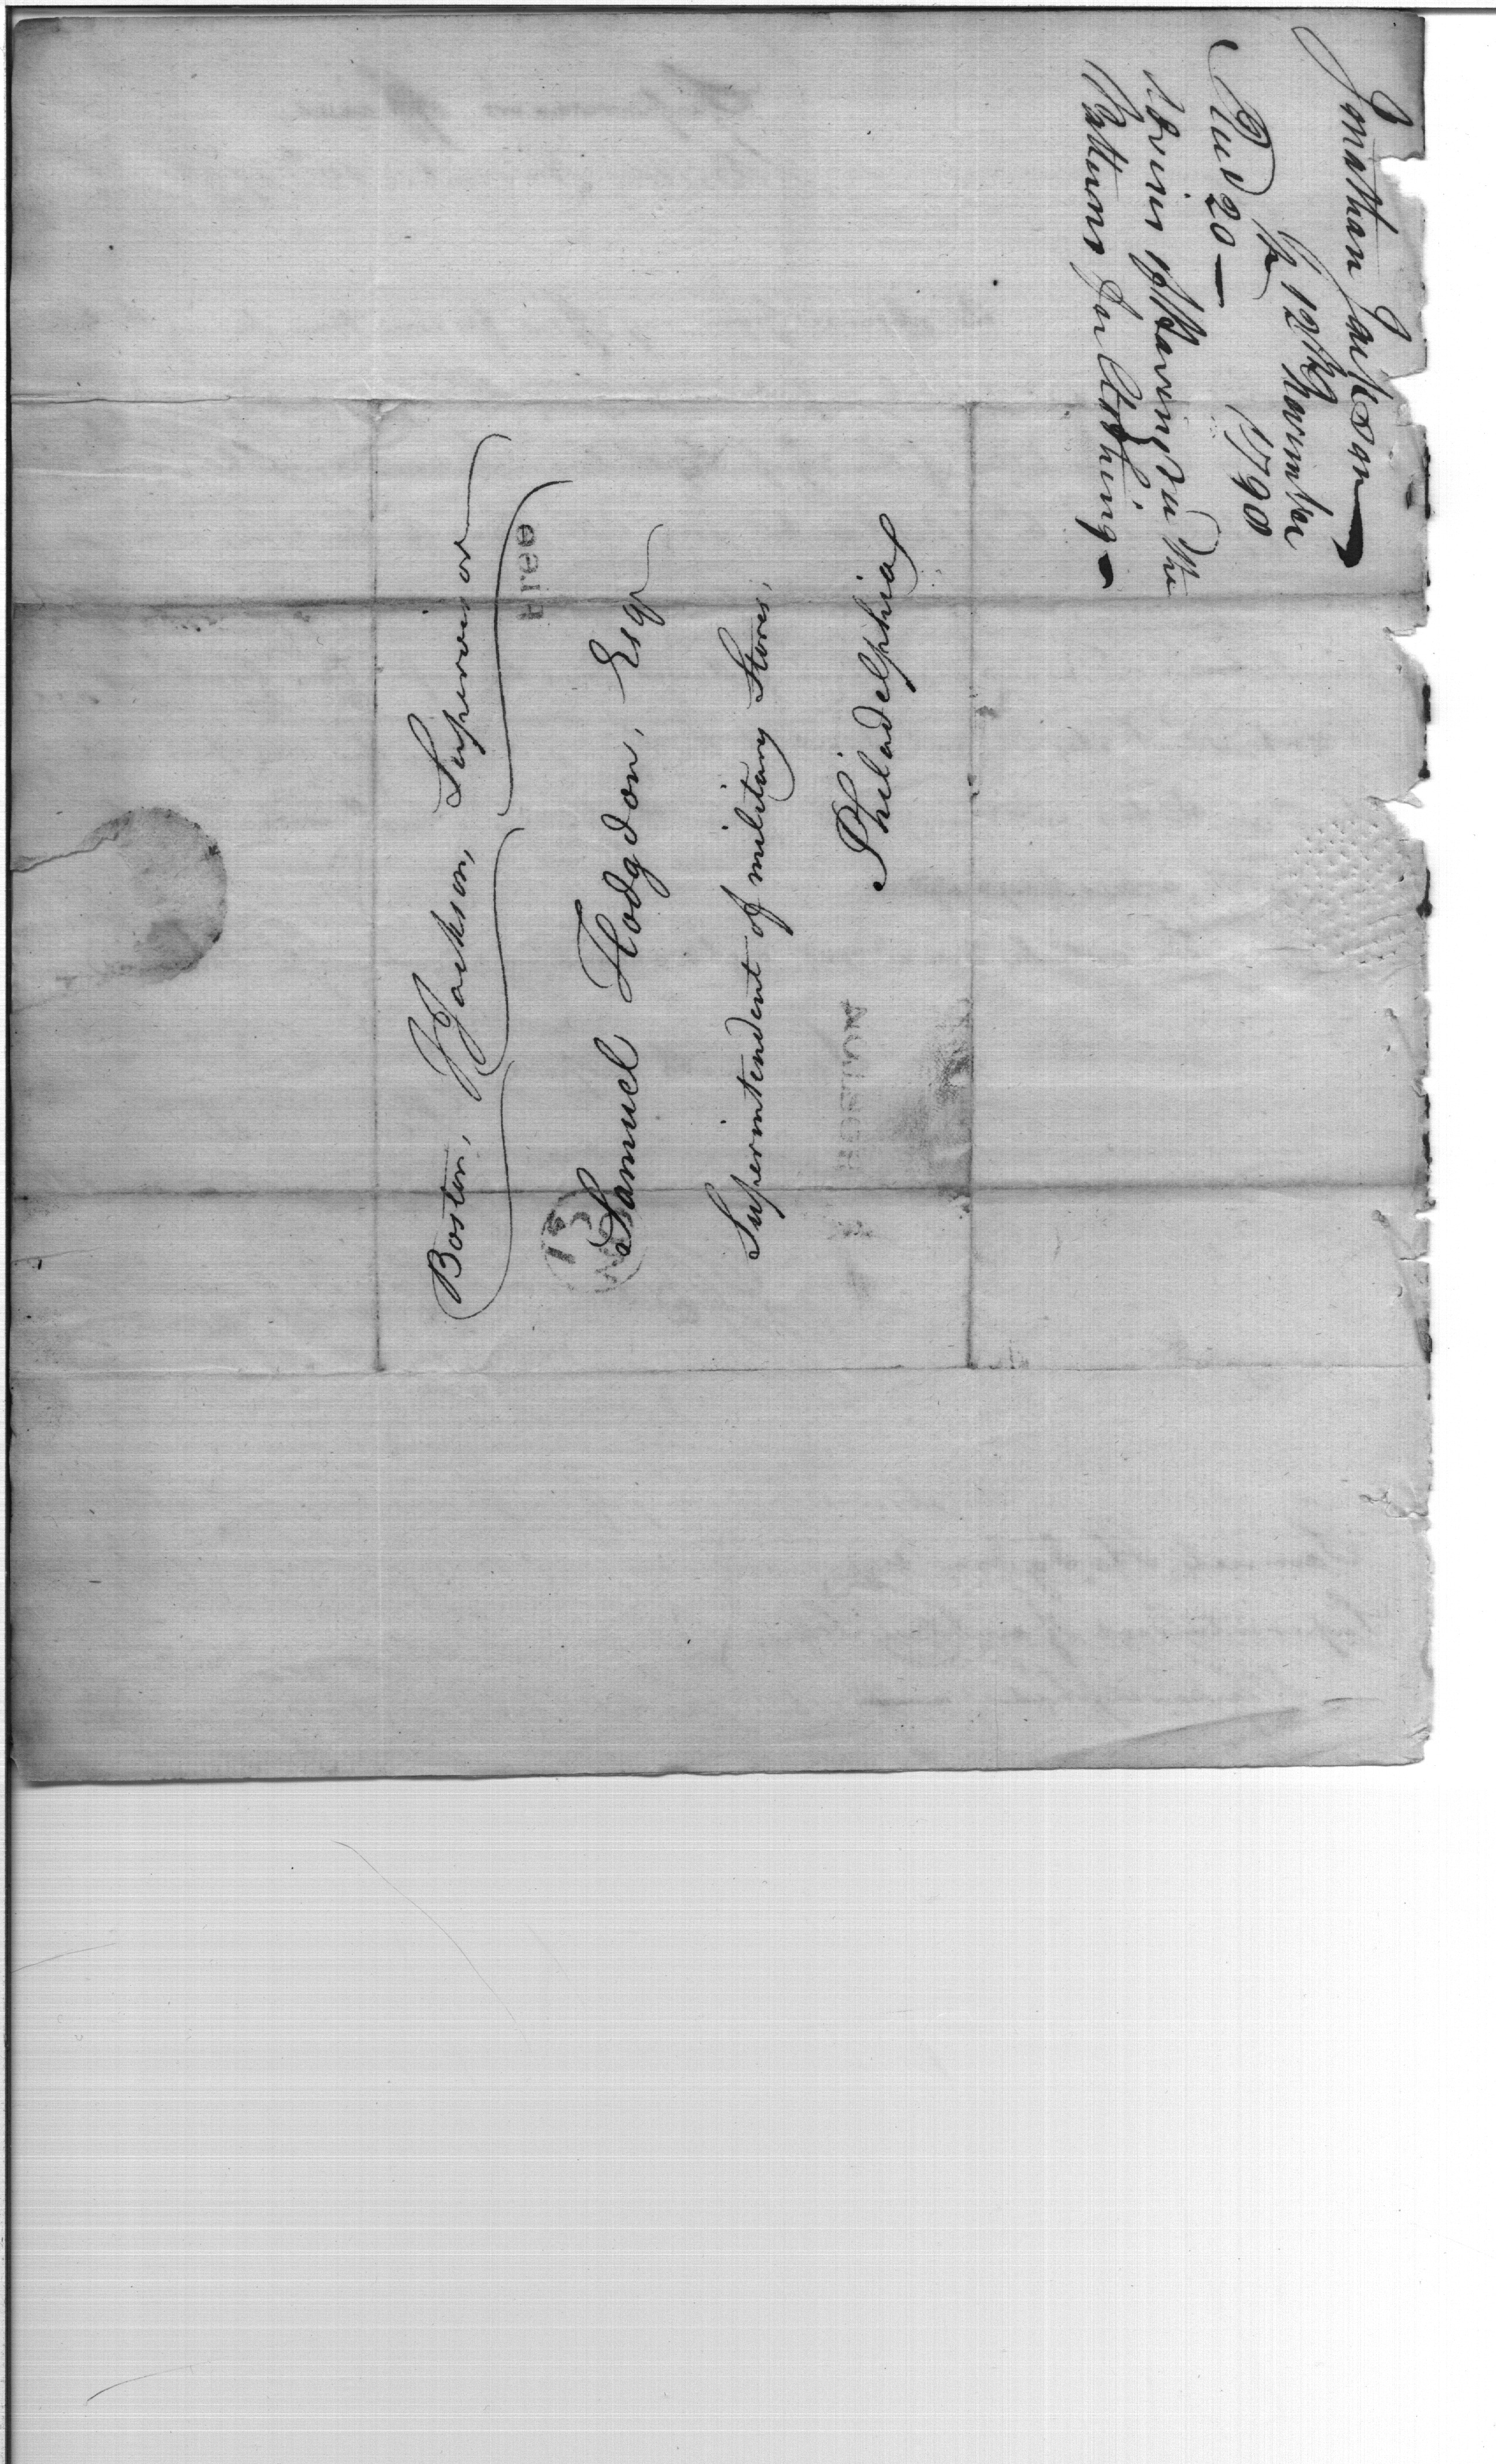 Boston, J Jackson, Supervisor
Free
Samuel Hodgdon, Esqr
Superintendent of military Stores,
Philadelphia
BOSTON
13
Jonathan Jackson
12th November
1798
Recd 20th
advises of having Recd the
Patterns for Clothing